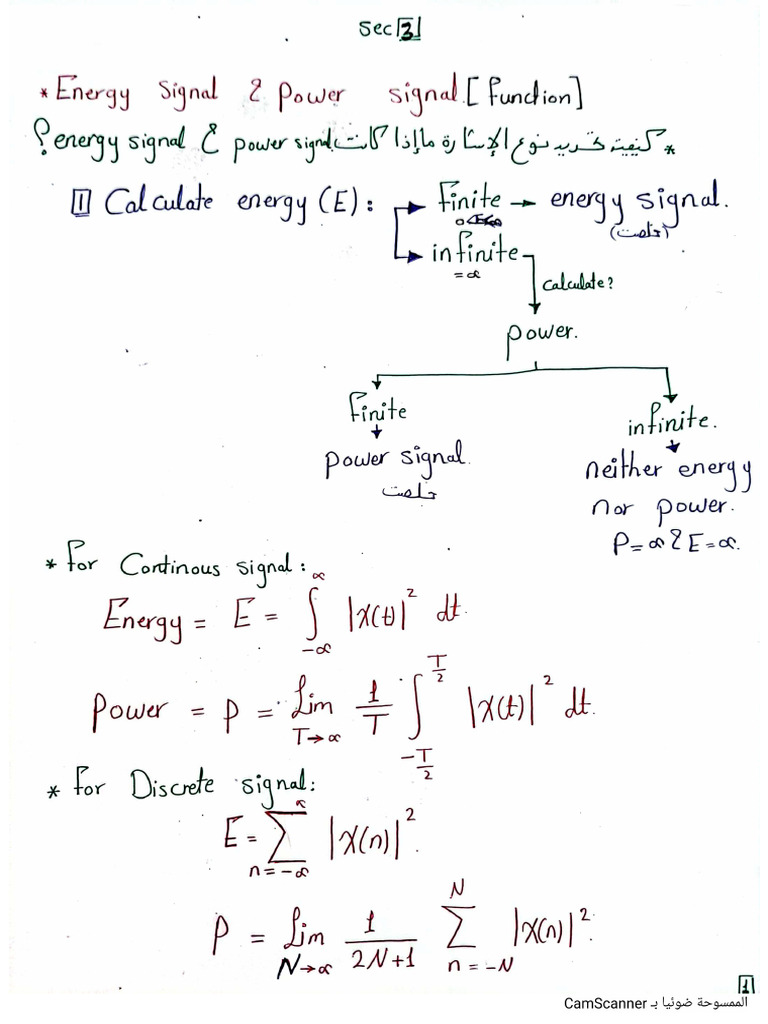 Sec 3
* Energy Signal & Power signal. [function]
* كيفية تحديد نوع الإشارة ماإذا كانت power signal & energy signal ؟
1 Calculate energy (E) : Finite → energy signal.
(خلصت)
infinite
= ∞
Calculate?
power.
Finite
infinite.
power signal.
خلصت
neither energy
nor power.
P = ∞ & E = ∞.
* for Continous signal :
Energy = E = ∫_{-∞}^{∞} |x(t)|² dt.
Power = P = Lim_{T→∞} 1/T ∫_{-T/2}^{T/2} |x(t)|² dt.
* for Discrete signal :
E = ∑_{n=-∞}^{∞} |x(n)|².
P = Lim_{N→∞} 1/(2N+1) ∑_{n=-N}^{N} |x(n)|².
1
الممسوحة ضوئيا بـ CamScanner